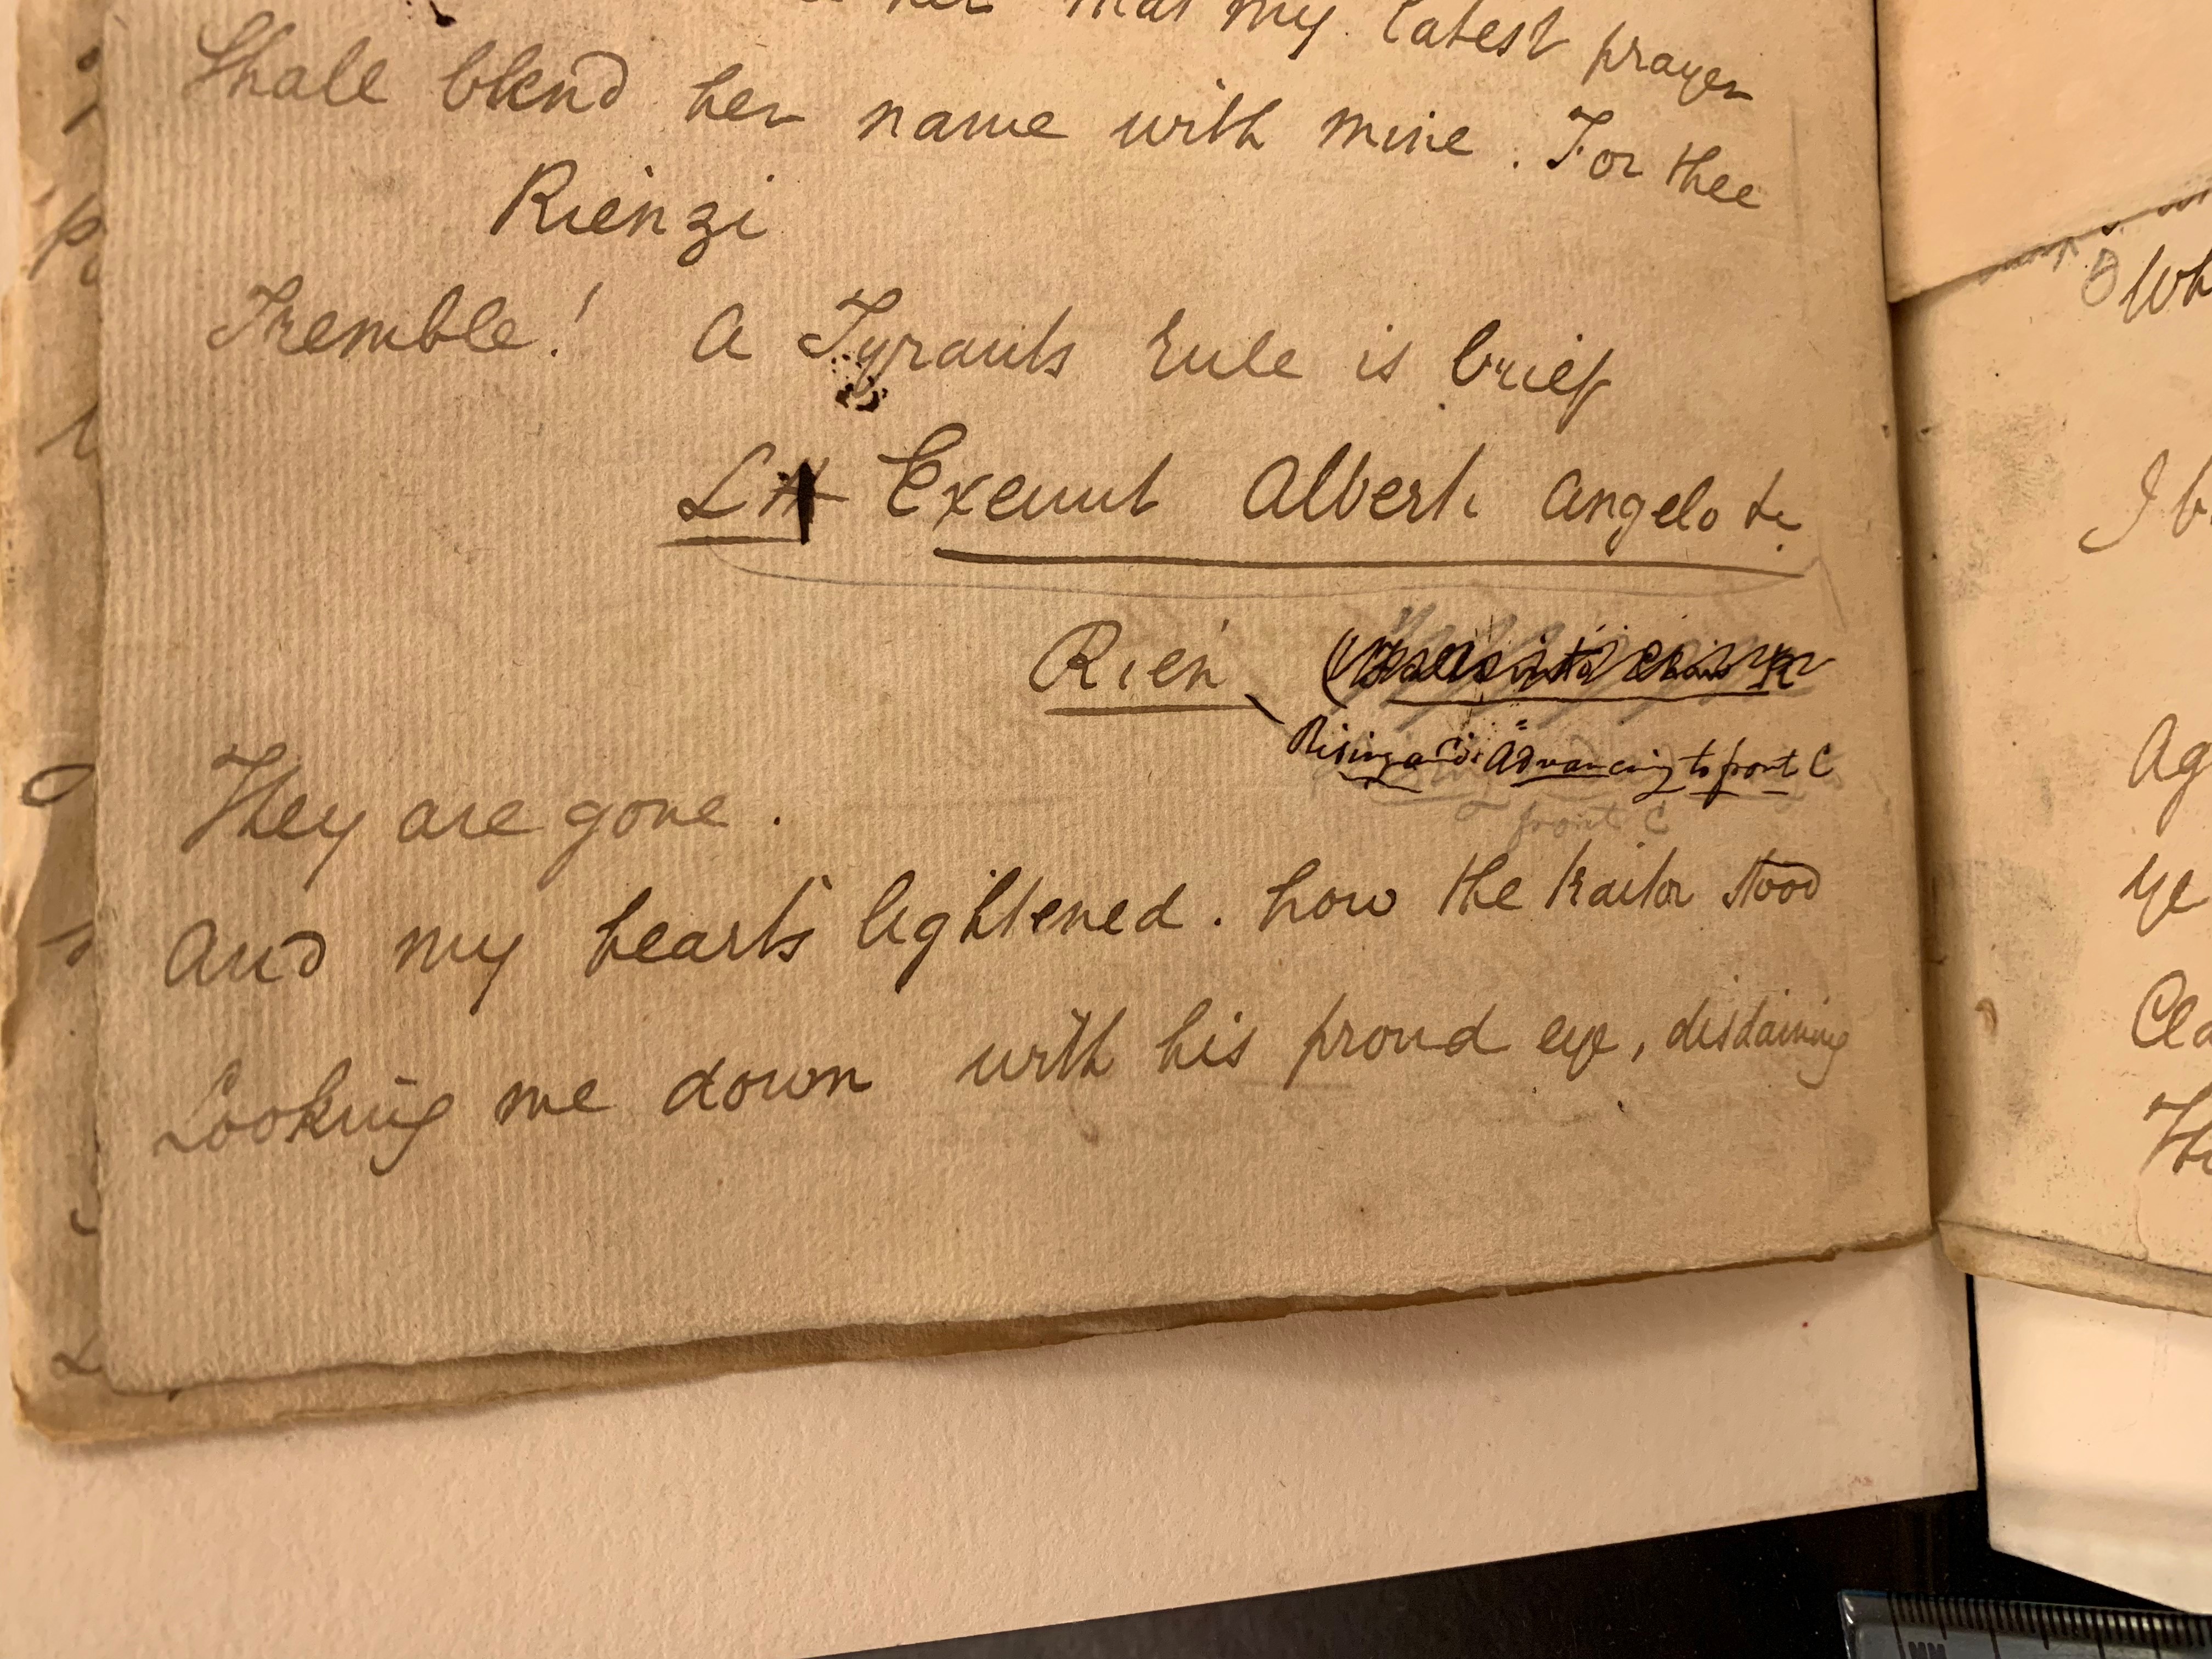 her that my latest prayer
Shall blend her name with mine. For thee
Rienzi
Tremble! A Tyrants rule is brief
LH Exeunt Albert. Angelo &c.
Rien
Rising and Advancing to front C
front C
They are gone.
And my heart's lightened. how the traitor stood
Looking me down with his proud eye, disdaining
Wh
I b
Ag
ye
Cla
Th